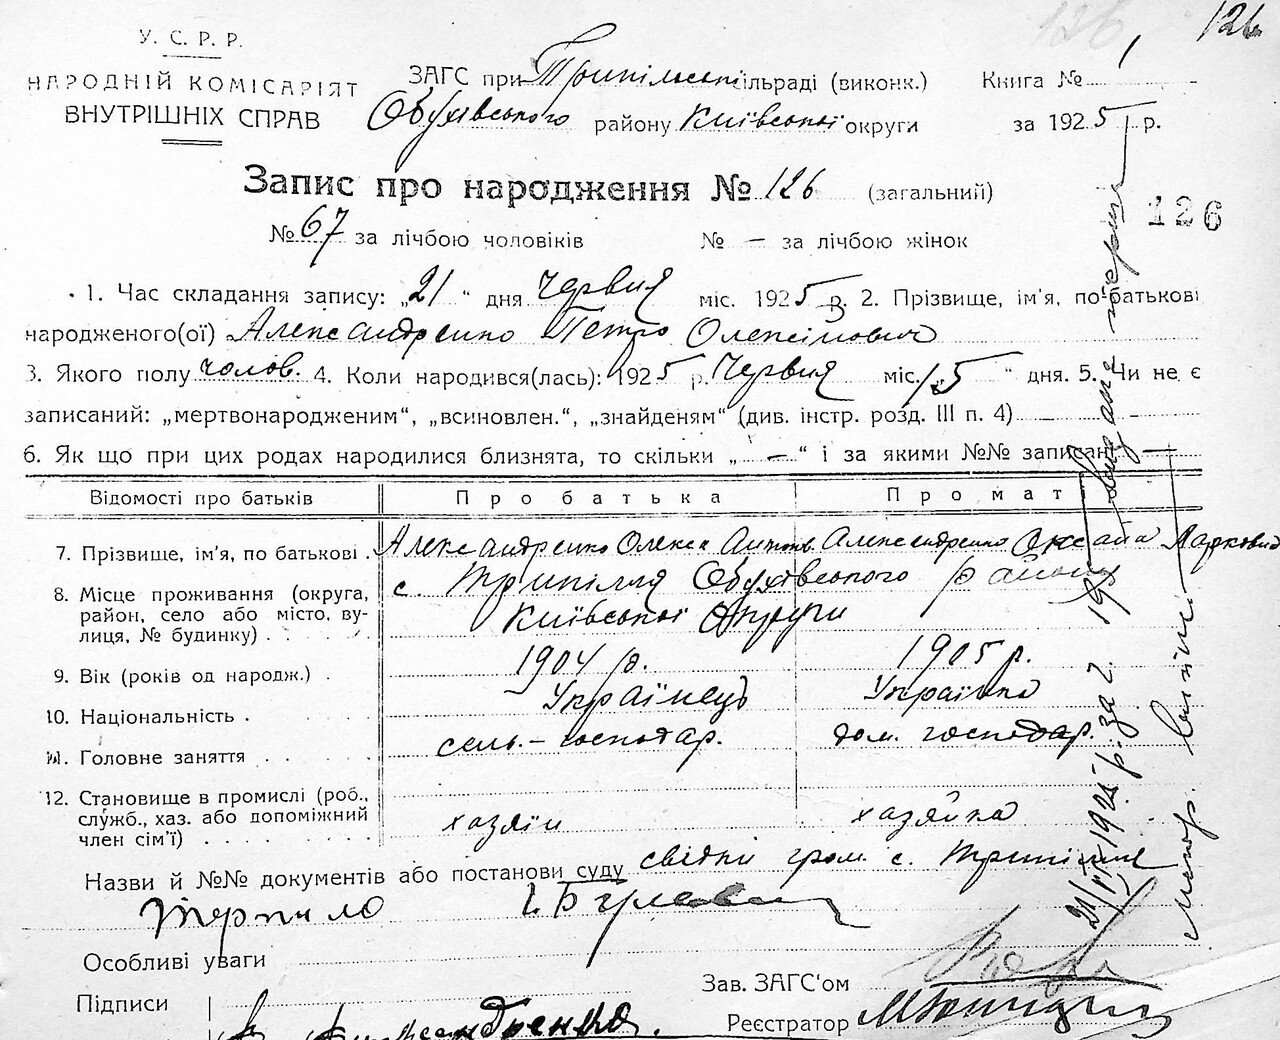 126 126
У. С. Р. Р.
НАРОДНІЙ КОМІСАРІЯТ
ВНУТРІШНІХ СПРАВ
ЗАГС при Трипільскі ільраді (виконк.) Книга № 1
Обухівського району Київської округи за 1925 р.
Запис про народження № 126 (загальний)
126
№ 67 за лічбою чоловіків № — за лічбою жінок
1. Час складання запису: „21“ дня Червня міс. 1925 р. 2. Прізвище, ім'я, по-батькові
народженого(ої) Александренко Петро Олексійович
3. Якого полу чолов. 4. Коли народився(лась): 1925 р. Червня міс. 15“ дня. 5. Чи не є
записаний: „мертвонародженим“, „всиновлен.“, „знайденям“ (див. інстр. розд. III п. 4)
6. Як що при цих родах народилися близнята, то скільки „—“ і за якими №№ записані —
Відомості про батьків Про батька Про маті
7. Прізвище, ім'я, по батькові Александренко Олекса Антонв. Александренко Оксана Марковна
8. Місце проживання (округа,
район, село або місто, ву-
лиця, № будинку)
с. Трипілля Обухівського району
Київської округи
9. Вік (років од народж.) 1904 р. 1905 р.
10. Національність Українець Українка
11. Головне заняття сель.-господар. дом. господар.
12. Становище в промислі (роб.,
служб., хаз. або допоміжний
член сім'ї)
хазяїн хазяйка
Назви й №№ документів або постанови суду свідки гром. с. Трипілля
Терпило
Особливі уваги
Підписи
Александренко.
Зав. ЗАГС‘ом
Реєстратор
21/VI 1925 р. за г. 19
видана